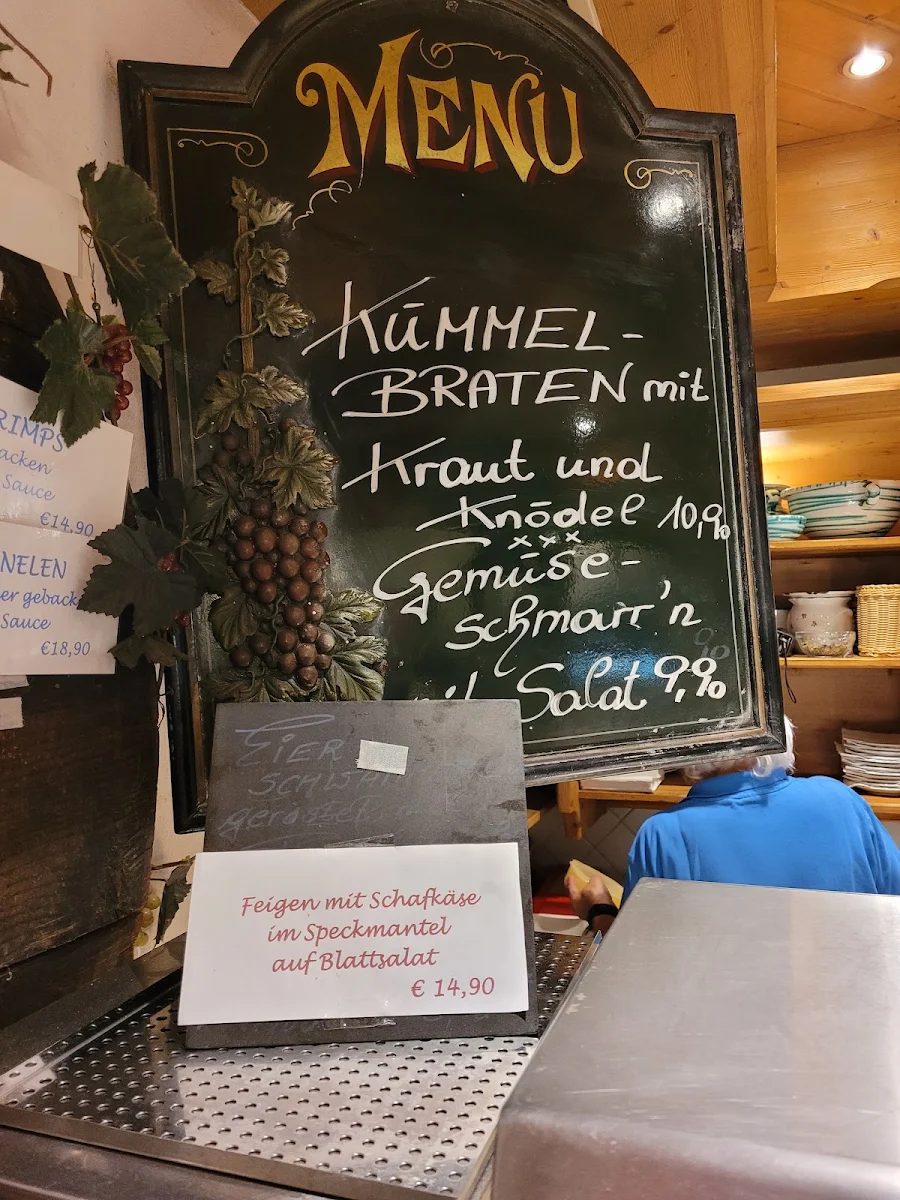 MENU
KÜMMEL-
BRATEN mit
Kraut und
Knödel 10,90
xxx
Gemüse-
schmarr'n
Salat 9,90
RIMPS
acken
Sauce
€14.90
NELEN
er geback
Sauce
€18,90
EIER
gerösset
Feigen mit Schafkäse
im Speckmantel
auf Blattsalat
€ 14,90